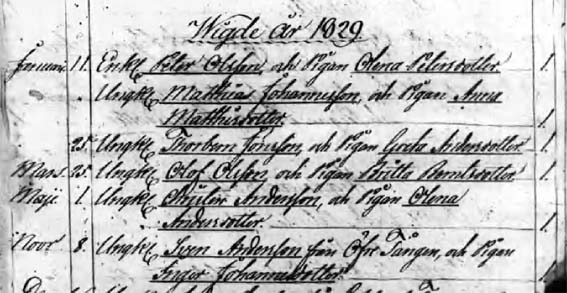 Wigde år 1829
Januari 11. Enkl. Peter Olsson, och Pigan Olena Petersdotter 1.
Ungkl. Matthias Johannesson, och Pigan Anna
Matthisdotter 1.
25. Ungkl. Thorbern Jonsson, och Pigan Greta Andersdotter 1.
Mars 25. Ungkl. Olof Olsson, och Pigan Britta Berntsdotter 1.
Maji 1. Ungkl. Andersson, och Pigan Olena
Andersdotter. 1.
Novr 8. Ungkl. Sven Andersson från Öfr Tången, och Pigan
Inger Johannesdotter. 1.